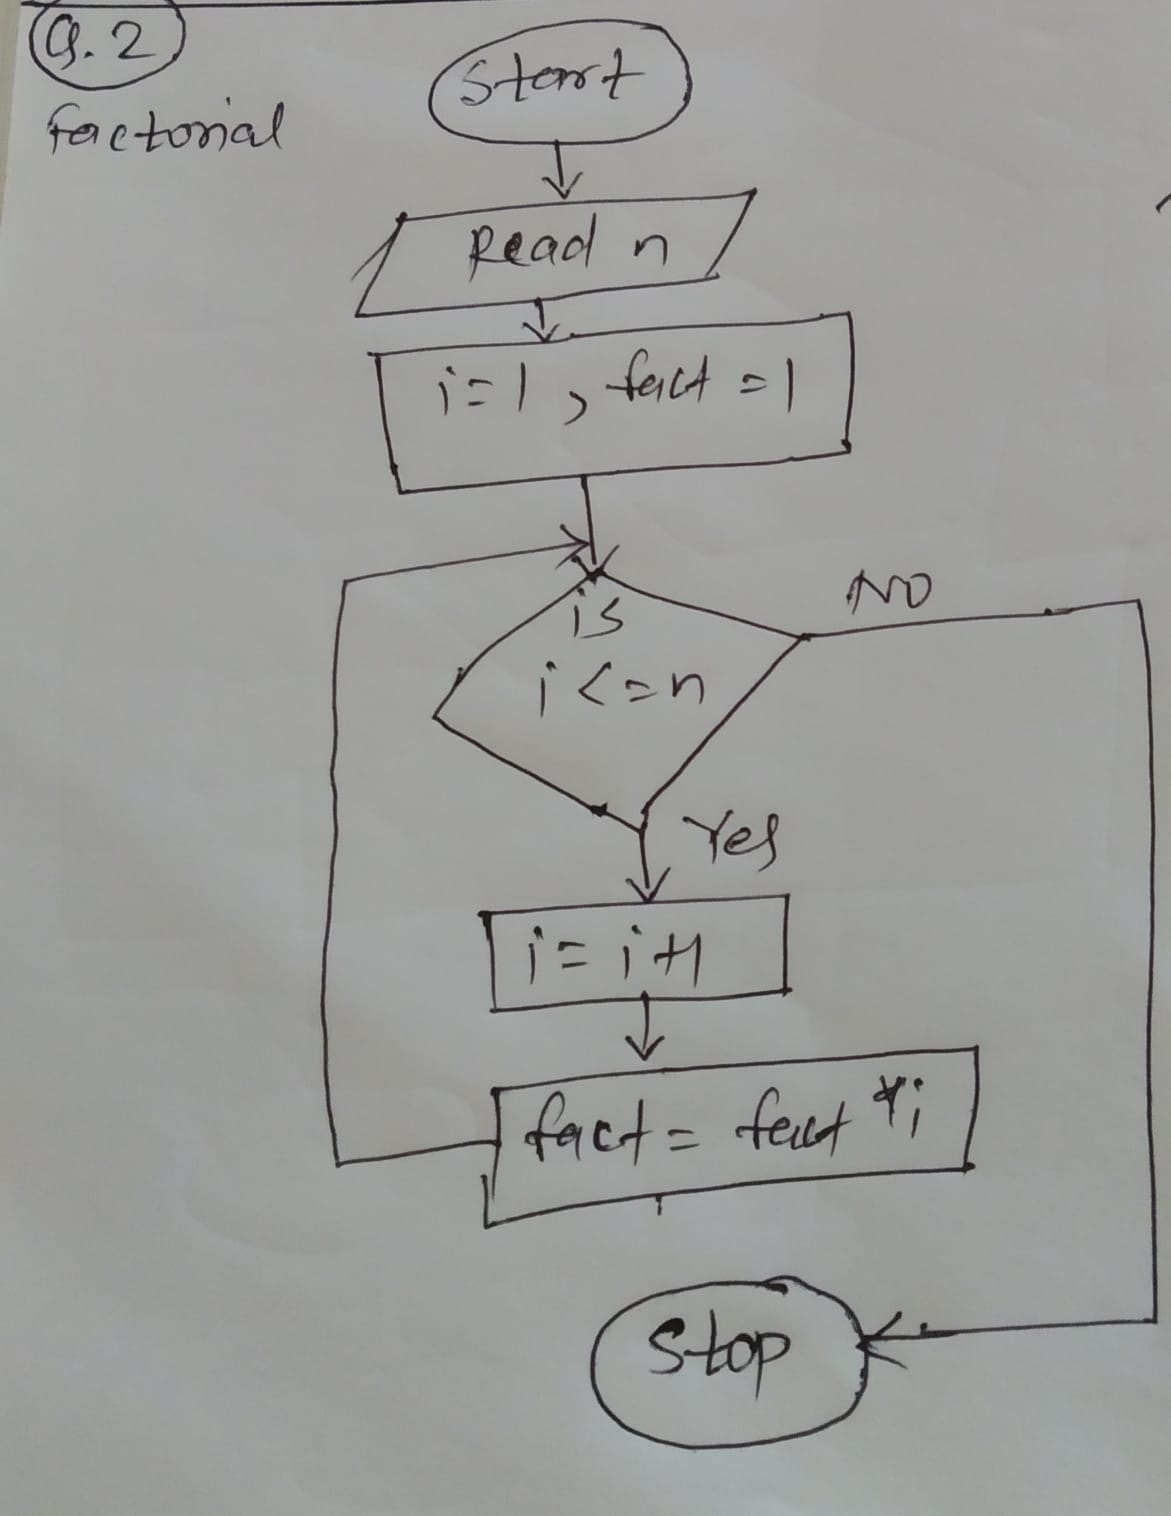 Q.2
factorial
Start
Read n
i=1, fact =1
is
i<=n
NO
Yes
i= i+1
fact= fact *i
Stop